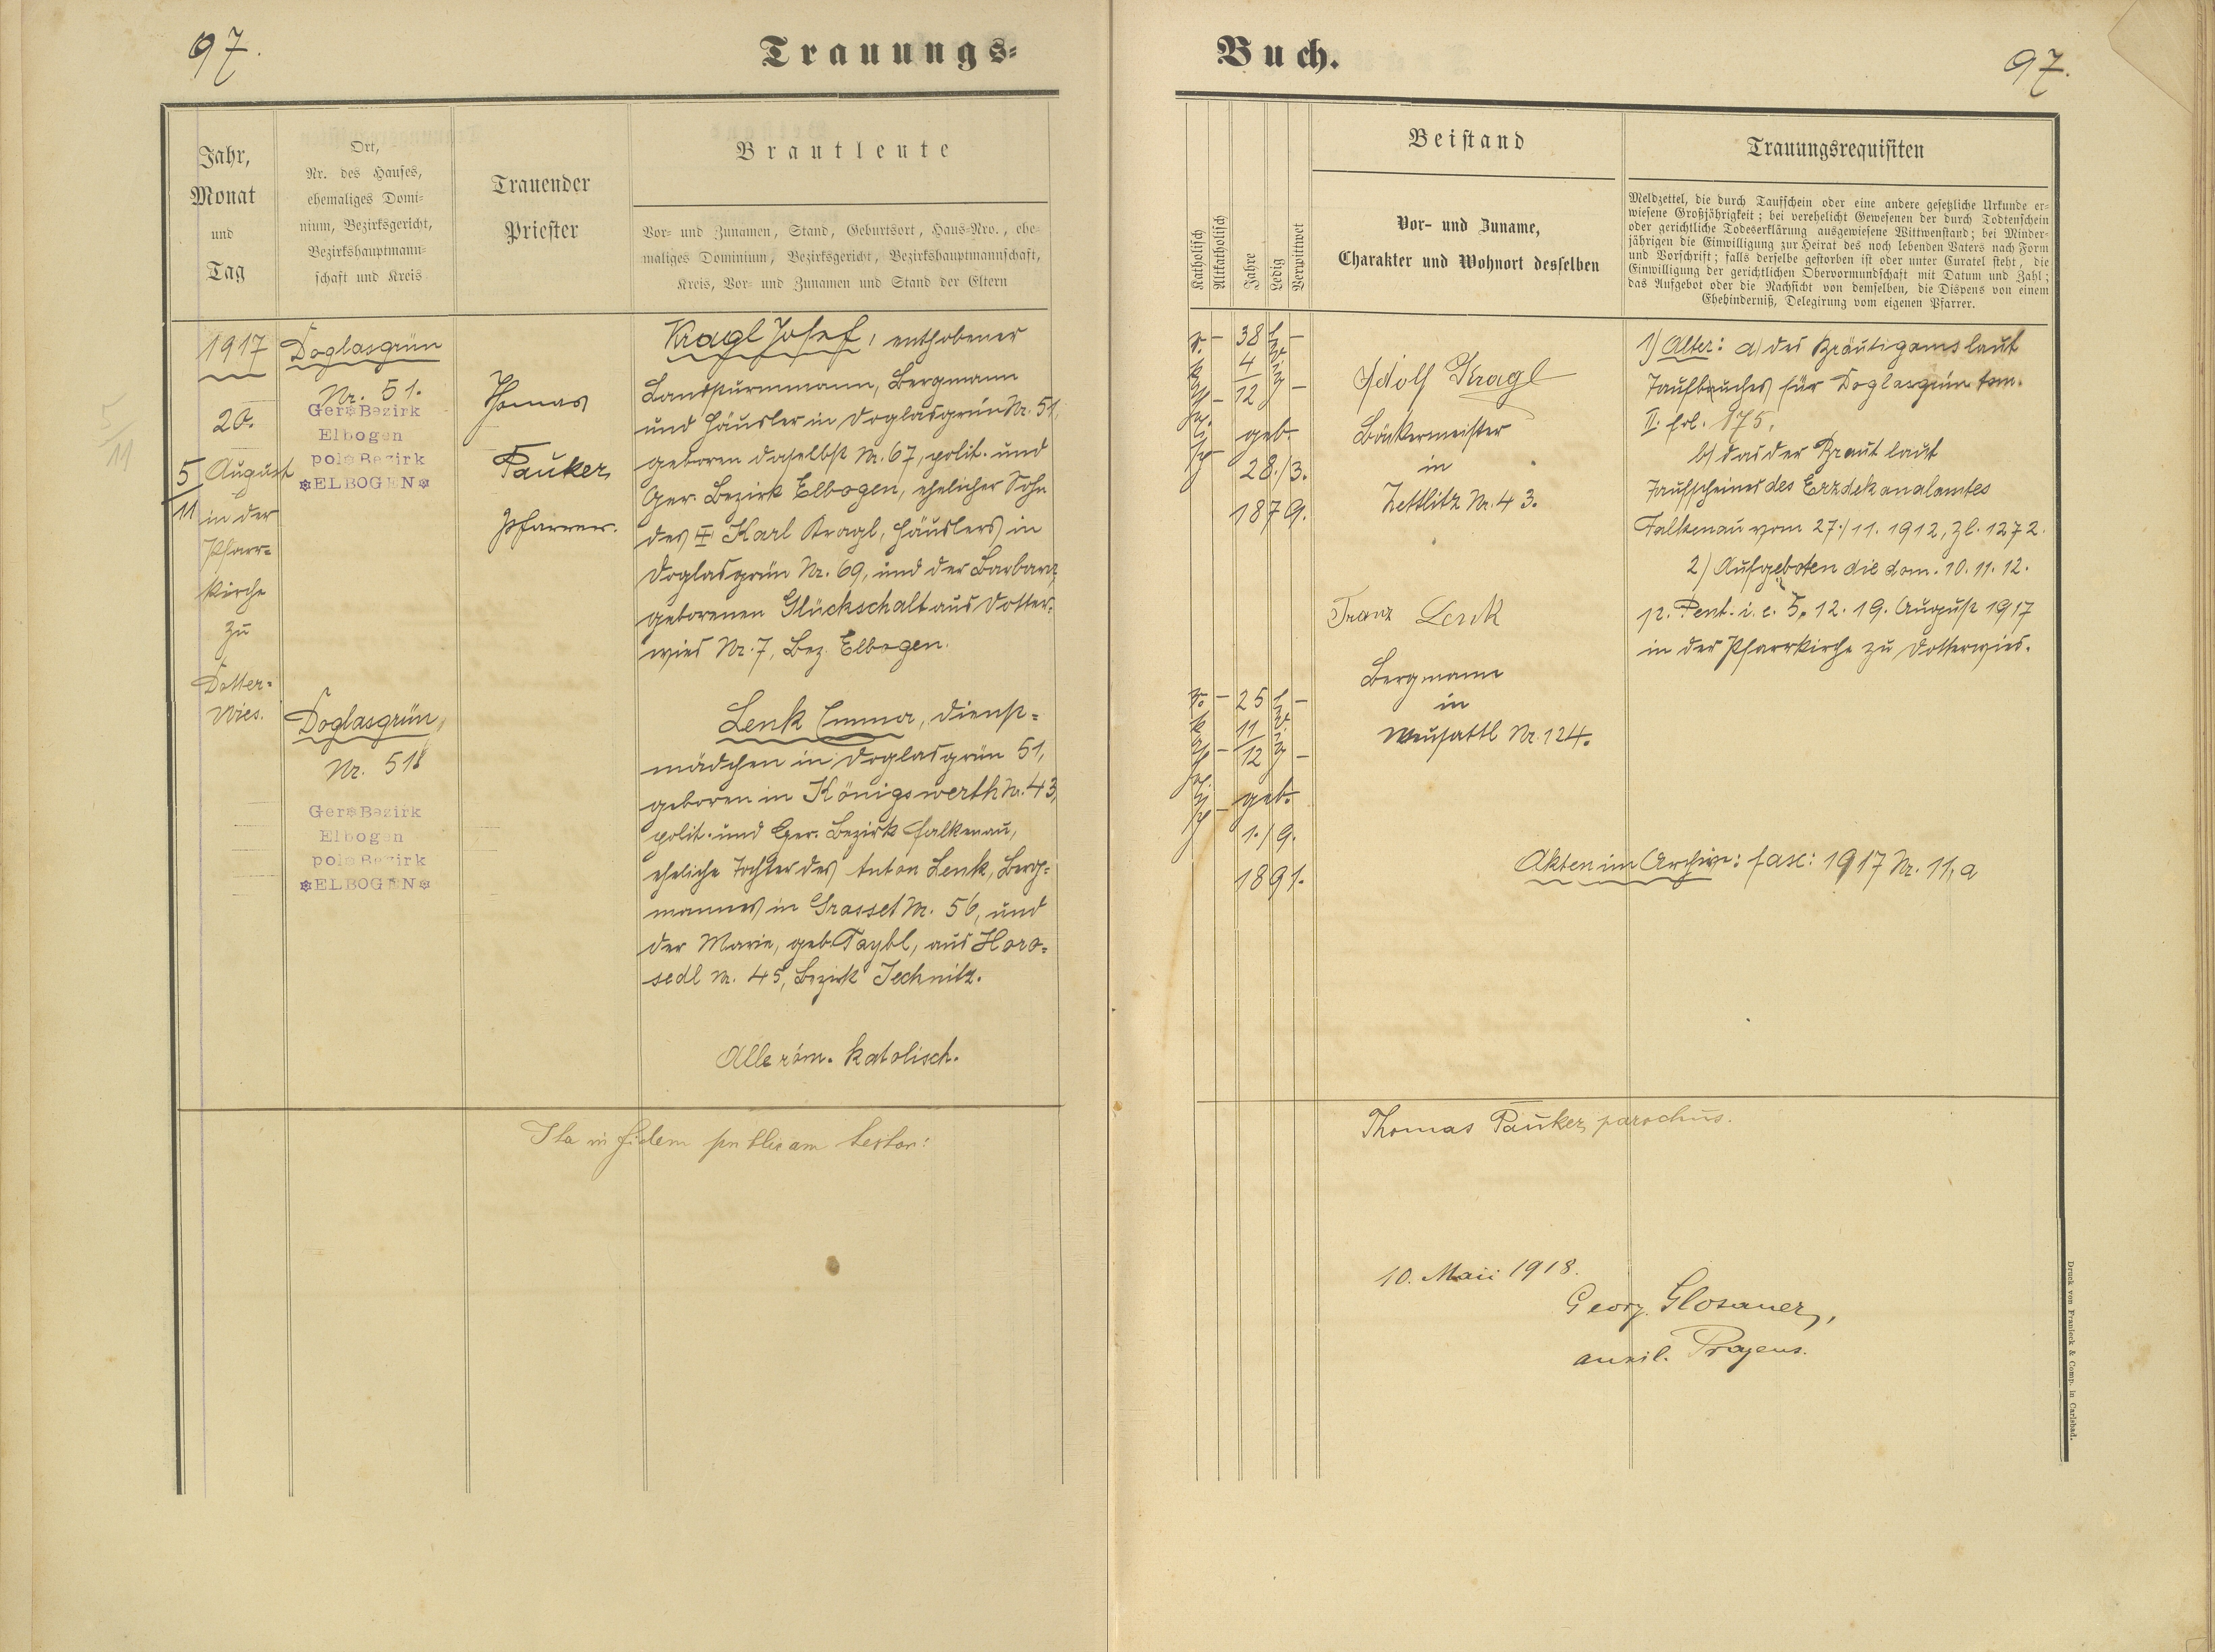 97.
Trauungs-
Jahr,
Monat
und
Tag
Ort,
Nr. des Hauses,
ehemaliges Domi-
nium, Bezirksgericht,
Bezirkshauptmann-
schaft und Kreis
Trauender
Priester
Brautleute
Vor- und Zunamen, Stand, Geburtsort, Haus-Nro., ehe-
maliges Dominium, Bezirksgericht, Bezirkshauptmannschaft,
Kreis, Vor- und Zunamen und Stand der Eltern
1917
20.
August
in der
Pfarr-
kirche
zu
Dotter-
wies.
5
11
5
11
Doglasgrün
Nr. 51.
Ger Bezirk
Elbogen
pol Bezirk
ELBOGEN
Doglasgrün,
Nr. 51
Ger Bezirk
Elbogen
pol Bezirk
ELBOGEN
Thomas
Pauker,
Pfarrer.
Kragl Josef, enthobener
Landsturmmann, Bergmann
und Häusler in Doglasgrün Nr. 51,
geboren daselbst Nr. 67, polit. und
Ger. Bezirk Elbogen, ehelicher Sohn
des Karl Kragl, Häuslers in
Doglasgrün Nr. 69, und der Barbara,
geborenen Glückschalt aus Dotter-
wies Nr. 7, Bez. Elbogen.
Lenk Emma, Dienst-
mädchen in Doglasgrün 51,
geboren in Königswerth Nr. 43,
polit. und Ger. Bezirk Falkenau,
eheliche Tochter des Anton Lenk, Berg-
mannes in Grasset Nr. 56, und
der Marie, geb. Taybl, aus Horo-
sedl Nr. 45, Bezirk Jechnitz.
Alle röm. katolisch.
Ita in fidem publicam testor:
Buch.
97.
Katholisch
Altkatholisch
Jahre
Ledig
Verwittwet
Beistand
Vor- und Zuname,
Charakter und Wohnort desselben
Trauungsrequisiten
Meldzettel, die durch Taufschein oder eine andere gesetzliche Urkunde er-
wiesene Großjährigkeit; bei verehelicht Gewesenen der durch Todtenschein
oder gerichtliche Todeserklärung ausgewiesene Wittwenstand; bei Minder-
jährigen die Einwilligung zur Heirat des noch lebenden Vaters nach Form
und Vorschrift; falls derselbe gestorben ist oder unter Curatel steht, die
Einwilligung der gerichtlichen Obervormundschaft mit Datum und Zahl;
das Aufgebot oder die Nachsicht von demselben, die Dispens von einem
Ehehinderniß, Delegirung vom eigenen Pfarrer.
r. katholisch
38
4
12
geb.
28./3.
1879.
ledig
r. katholisch
25
11
12
geb.
1./9.
1891.
ledig
Adolf Kragl
Bäckermeister
in
Zettlitz Nr. 43.
Franz Lenk
Bergmann
in
Neusattl Nr. 124.
1) Alter: a) des Bräutigams laut
Taufbuches für Doglasgrün tom.
II. fol. 175.
b) das der Braut laut
Taufscheines des Erzdekanalamtes
Falkenau vom 27./11. 1912, Zl. 1272.
2) Aufgeboten die dom. 10. 11. 12.
p. Pent. i. e. 5. 12. 19. August 1917
in der Pfarrkirche zu Dotterwies.
Akten im Archiv: fasc: 1917 Nr. 11, a
Thomas Pauker, parochus.
10. Maii 1918.
Georg Glosauer,
auxil. Pragens.
Druck von Franieck & Comp. in Carlsbad.